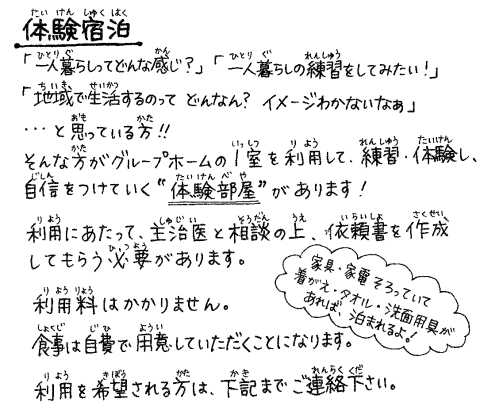 体験宿泊
「一人暮らしってどんな感じ？」「一人暮らしの練習をしてみたい！」
「地域で生活するのって どんなん？ イメージわかないなぁ」
…と思っている方!!
そんな方がグループホームの1室を利用して、練習・体験し、
自信をつけていく"体験部屋"があります！
利用にあたって、主治医と相談の上、依頼書を作成
してもらう必要があります。
家具・家電そろっていて
着がえ・タオル・洗面用具が
あれば、泊まれるよ！
利用料はかかりません。
食事は自費で用意していただくことになります。
利用を希望される方は、下記までご連絡下さい。